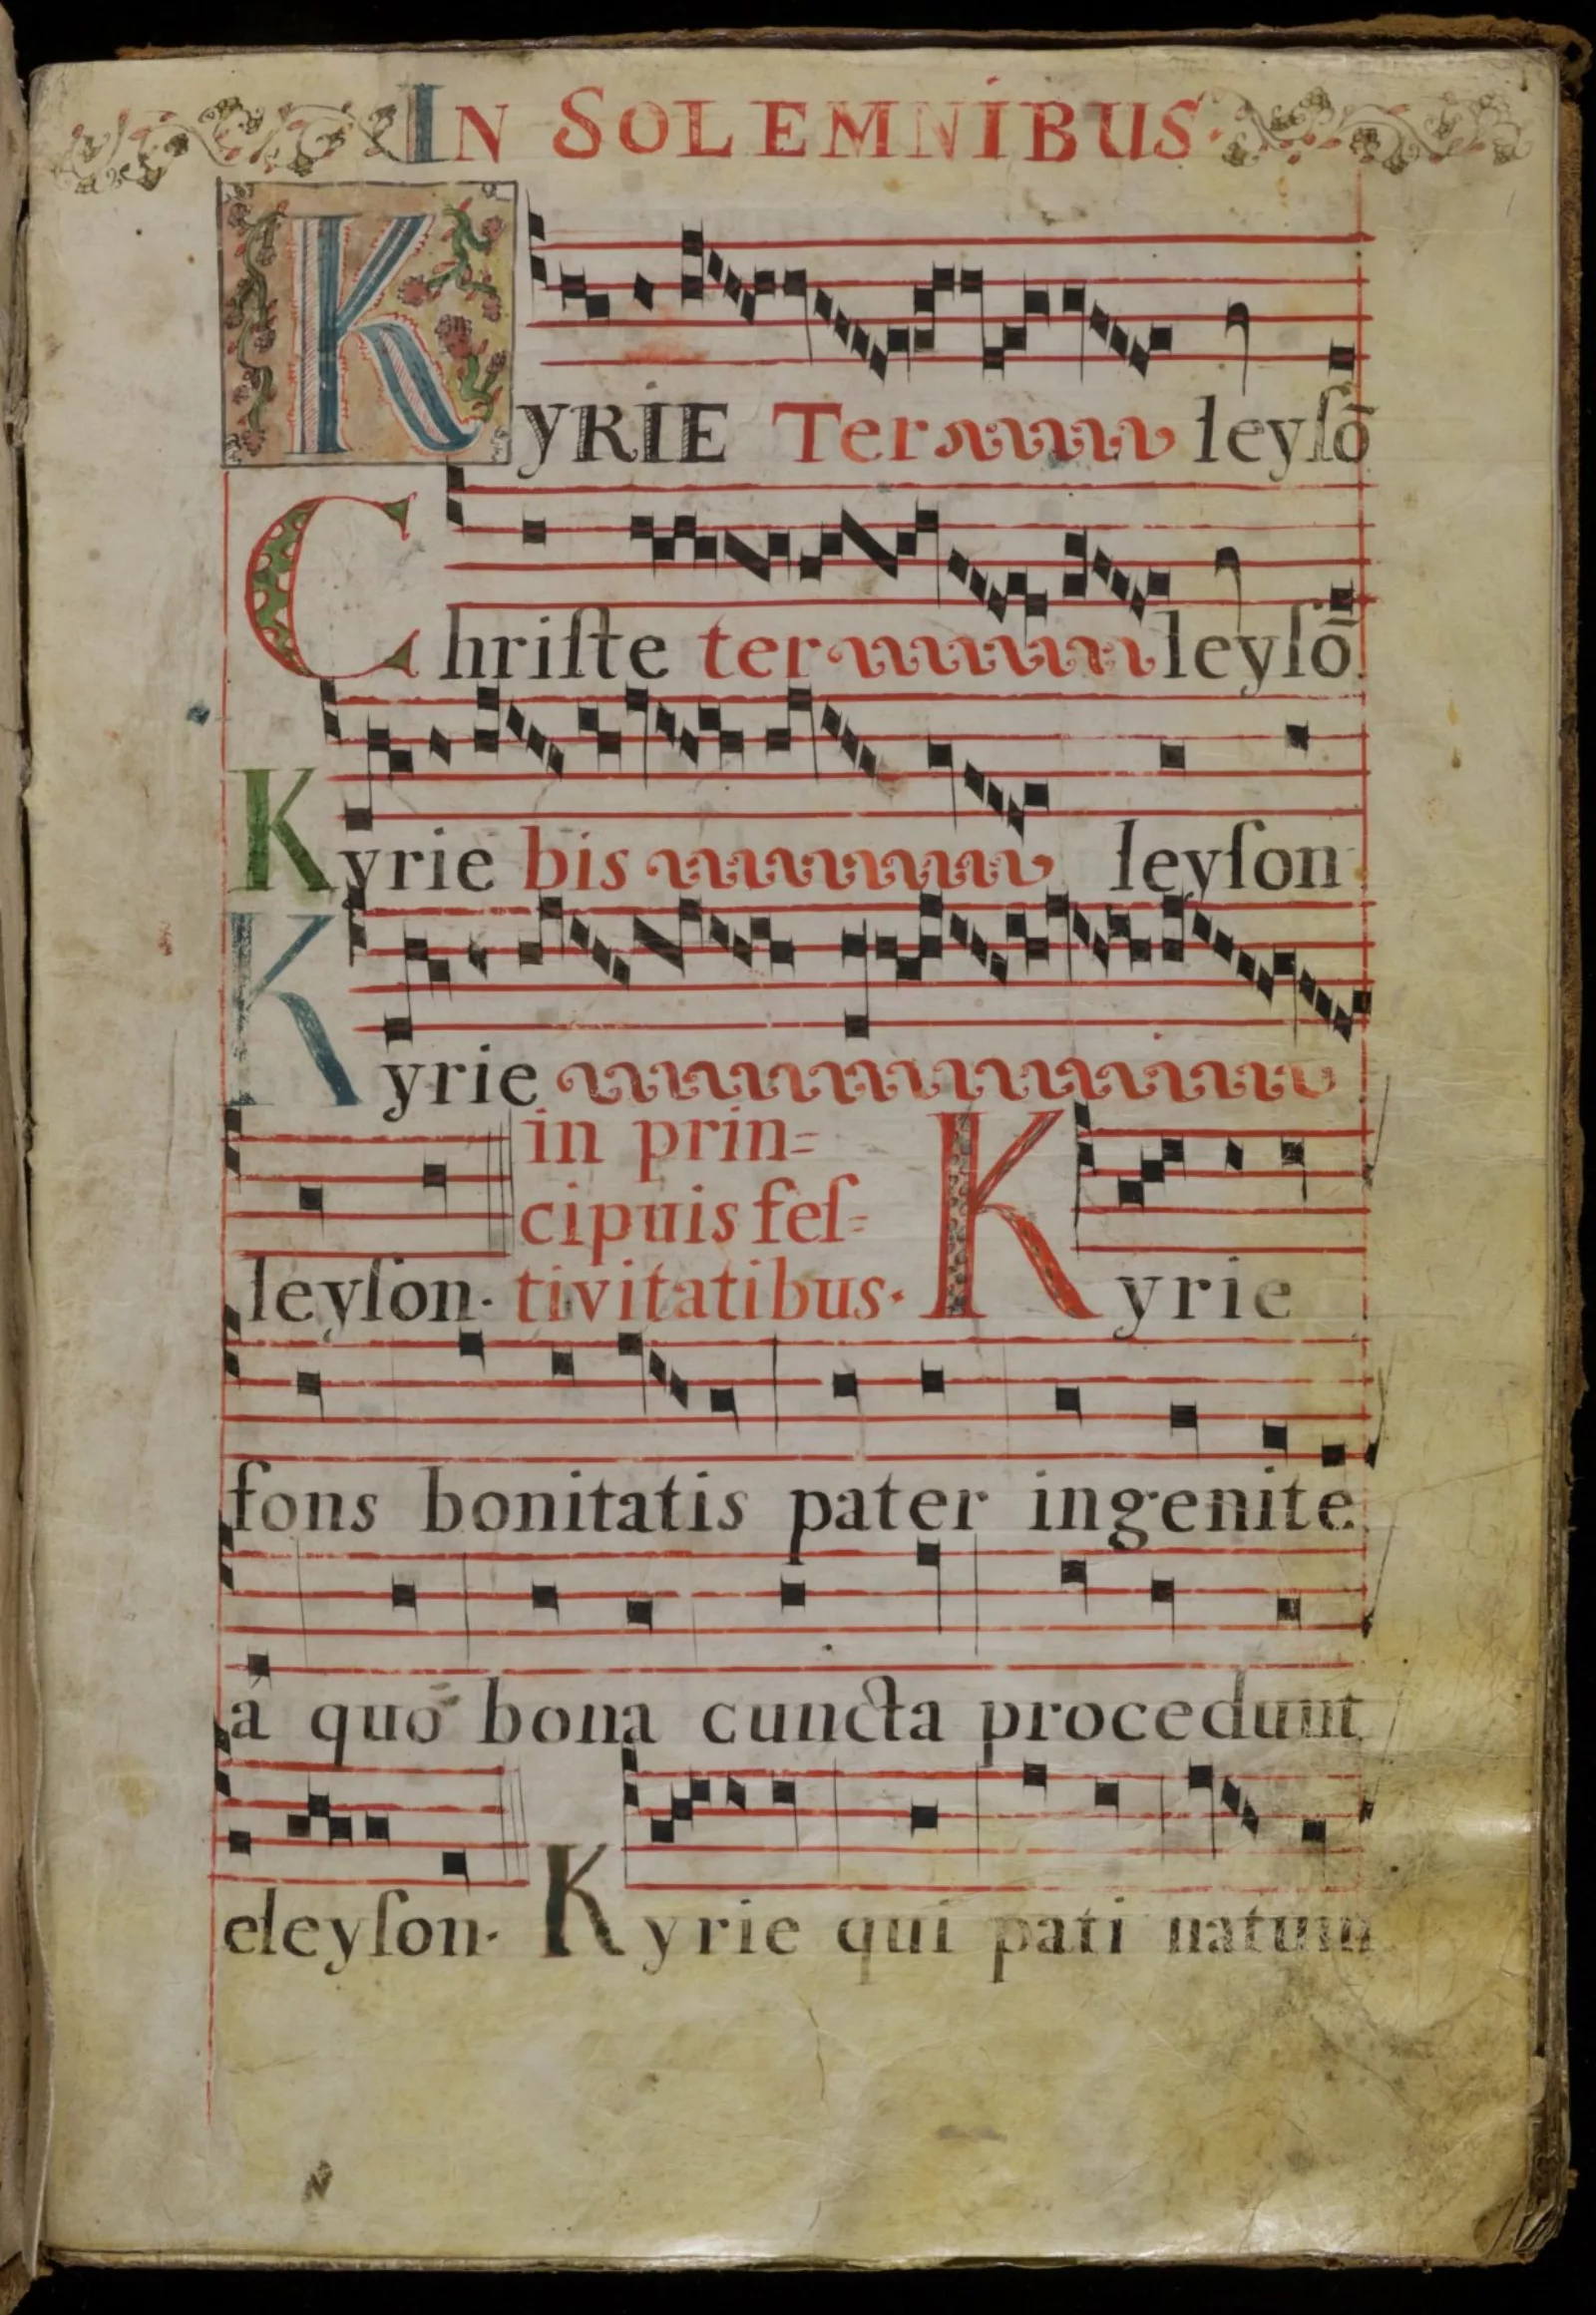 IN SOLEMNIBUS.
KYRIE Ter leyſõ
Chriſte ter leyſõ
Kyrie bis leyſon
Kyrie
leyſon. in prin= cipuis feſ= tivitatibus. Kyrie
fons bonitatis pater ingenite
á quo bona cuncta procedunt
eleyſon. Kyrie qui pati natum